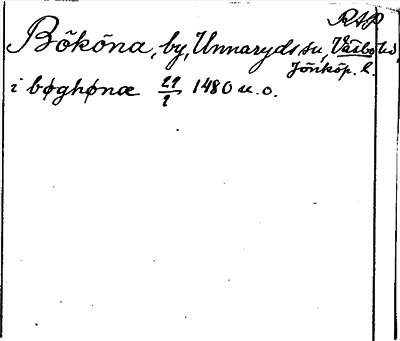 RAP
Bököna, by, Unnaryds sn, Västbo hd,
Jönköp. l.
i bøghønæ 29/1 1480 u.o.